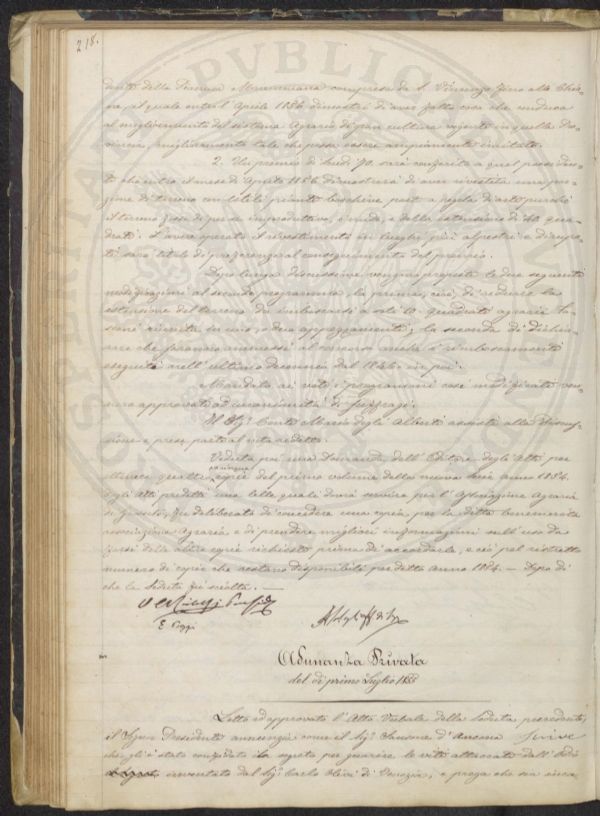 218.
dente della Pianura Maremmana compresa da S. Vincenzo fino alla Chia-
ra, il quale entro l'Aprile 1856 dimostri di aver fatto cosa che conduca
al miglioramento del sistema Agrario di gran cultura vigente in quella Pro-
vincia, miglioramento tale che possa essere ampiamente imitato.
2. Un premio di Scudi 70. sarà conferito a quel possiden-
te che entro il mese di Aprile 1856 dimostrerà di aver rivestita una por-
zione di terreno con utili piante boschive poste a regola d'arte purchè
il terreno fosse di prima improduttivo, e nudo, e della estensione di 40 qua-
drati. L'avere operato il rivestimento in luoghi più alpestri e
sarà titolo di preferenza al conseguimento del premio.
Dopo lunga discussione vengono proposte le due seguenti
modificazioni al secondo programma, la prima, cioè, di ridurre la
estensione del terreno da imboscarsi a soli 10 quadrati agrari To-
scani riuniti in uno o due appezzamenti; la seconda di dichia-
rare che saranno ammessi al concorso anche i rimboscamenti
eseguiti nell'ultimo decennio dal in poi.
Mandati ai voti i programmi così modificati ven-
nero approvati ad unanimità di suffragi.
Il Sig.r Conte Mario degli Alberti assistè alla discus-
sione e prese parte al voto redetto.
Veduta poi una Domanda dell'Editore degli Atti per
ottenere quattro copie del primo volume della nuova Serie anno 1854.
degli Atti predetti una delle quali dovrà servire per l'Associazione Agraria
di fu deliberato di concedere una copia per la detta benemerita
associazione Agraria e di prendere migliori informazioni sull'uso da
farsi delle altre copie richieste prima di accordarle, e ciò pel ristretto
numero di copie che restano disponibili per detto anno 1854. — Dopo di
che la Seduta fu sciolta. —
E Poggi
Adunanza Privata
del dì primo Luglio 1855
Letto ed approvato l'Atto Verbale della Seduta precedente,
il Signor Presidente annunzia come il Sig.r Sansone d'Ancona scrive
che gli è stato confidato il segreto per guarire le viti attaccate dall'Oidio
inventato dal Sig.r Carlo Olivi di Venezia, e prega che sia inca-